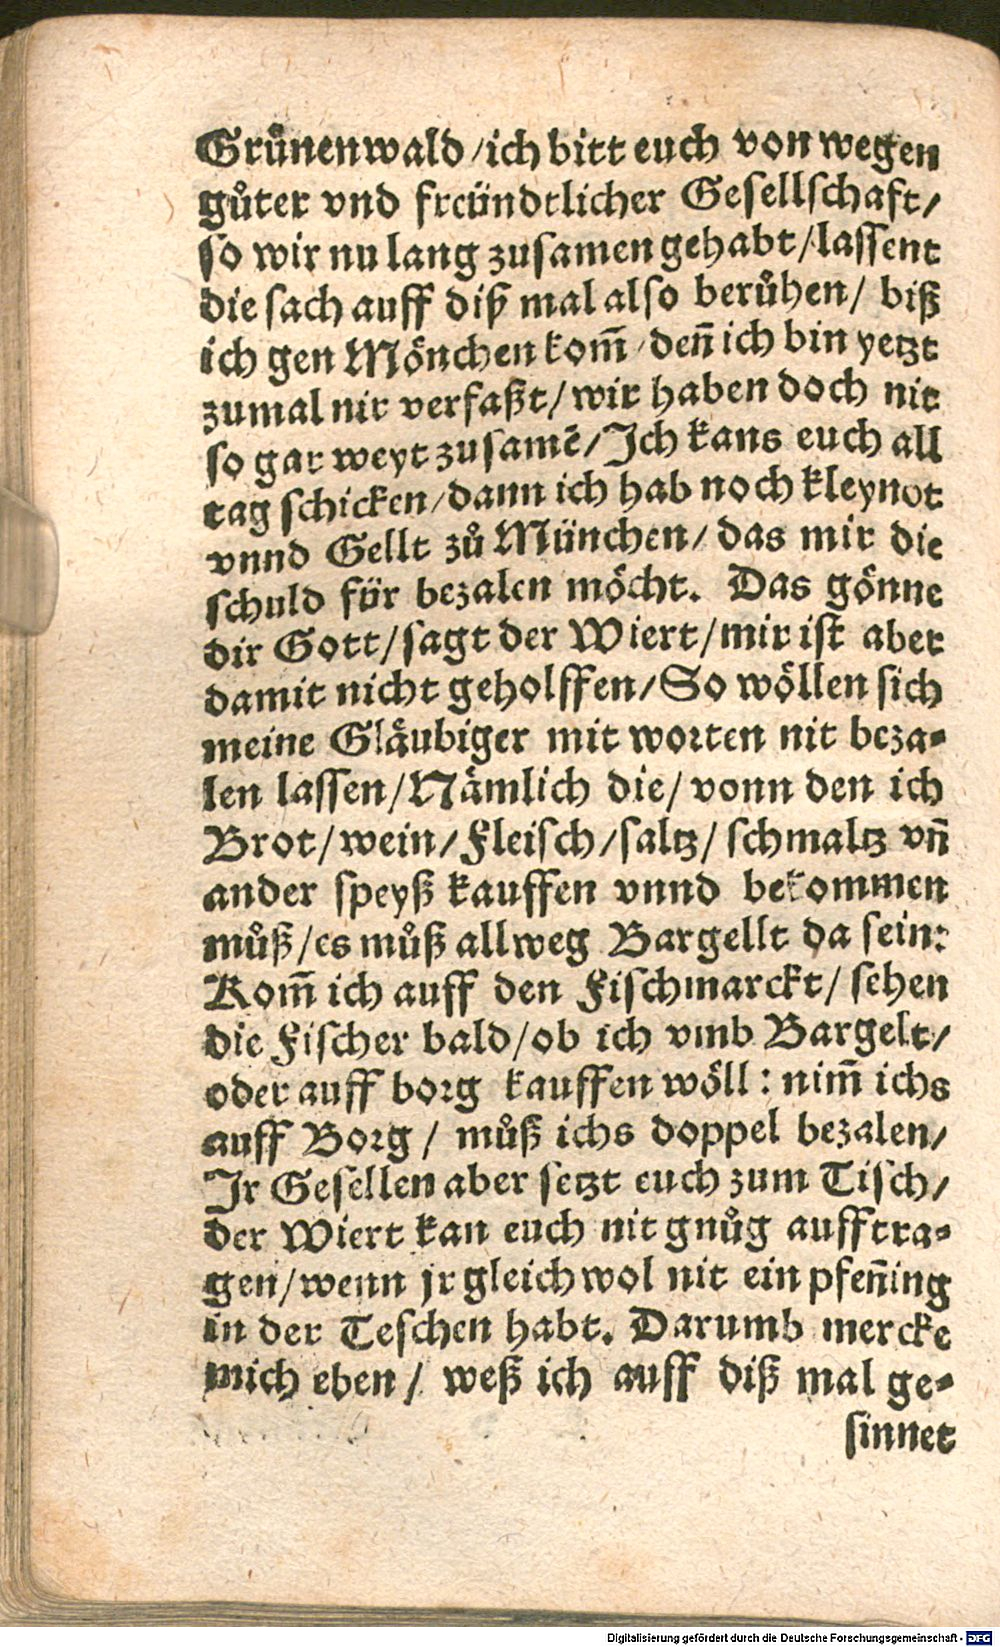 Gruͦnenwald / ich bitt euch von wegen
guͦter vnd freündtlicher Gesellschaft /
so wir nu lang zusamen gehabt / lassent
die sach auff diß mal also beruͦhen / biß
ich gen Mönchen kom̄ / den̄ ich bin yetzt
zumal nit verfaßt / wir haben doch nit
so gar weyt zusamē / Ich kans euch all
tag schicken / dann ich hab noch kleynot
vnnd Gellt zuͦ München / das mir die
schuld für bezalen möcht. Das gönne
dir Gott / sagt der Wiert / mir ist aber
damit nicht geholffen / So wöllen sich
meine Gläubiger mit worten nit beza-
len lassen / Nämlich die / vonn den ich
Brot / wein / Fleisch / saltz / schmaltz vn̄
ander speyß kauffen vnnd bekommen
muͦß / es muͦß allweg Bargellt da sein:
Kom̄ ich auff den Fischmarckt / sehen
die Fischer bald / ob ich vmb Bargelt /
oder auff borg kauffen wöll : nim̄ ichs
auff Borg / muͦß ichs doppel bezalen /
Ir Gesellen aber setzt euch zum Tisch /
der Wiert kan euch nit gnuͦg aufftra-
gen / wenn jr gleich wol nit ein pfen̄ing
in der Teschen habt. Darumb mercke
mich eben / weß ich auff diß mal ge-
sinnet
Digitalisierung gefördert durch die Deutsche Forschungsgemeinschaft - DFG